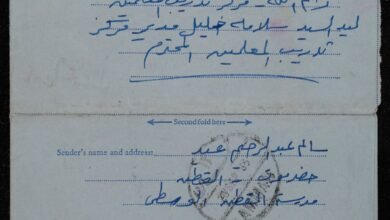 رام الله - مركز تدريب المعلمين
ليد السيد سلامه خليل مدير مركز
تدريب المعلمين المحترم
Second fold here
Sender's name and address:
سالم عبد الرحيم عبد
حضرموت القطن
مدرسة القطن الوسطى